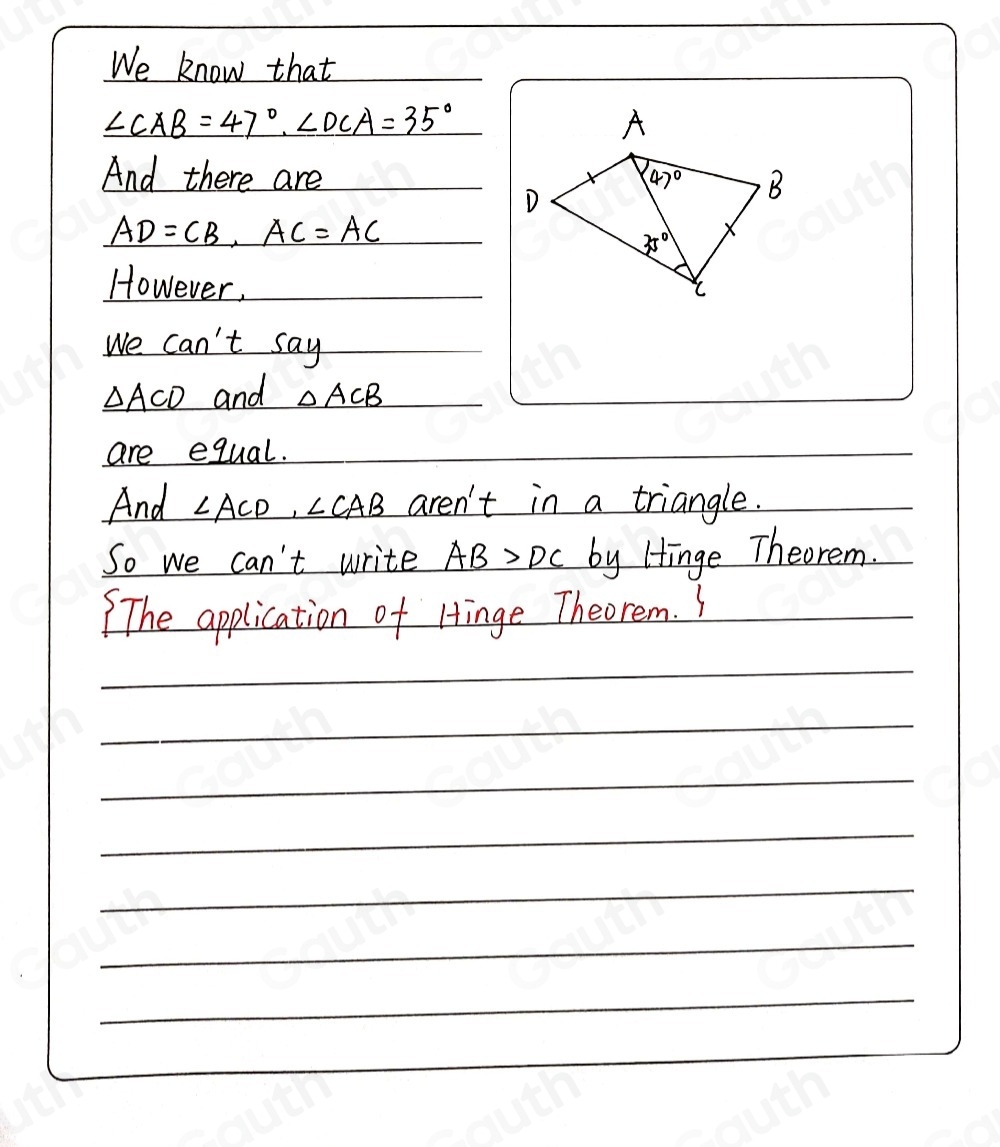 We know that
∠CAB = 47°. ∠DCA = 35°
And there are
AD = CB, AC = AC
However,
We can't say
△ACD and △ACB
are equal.
And ∠ACD, ∠CAB aren't in a triangle.
So we can't write AB > DC by Hinge Theorem.
{The application of Hinge Theorem.}
A
47°
B
D
35°
C
Gauth